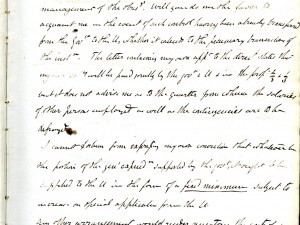 management of the Obsy. Will you do me the favor to
acquaint me in the event of such control having been already transferred
from the Govt to the U, whether it extends to the pecuniary transactions of
the instn. The letter conveying my own appt to the direct states that
my salary will be paid jointly by the govt & U in the propn
but it does not advise me as to the quarter from whence the salaries
of other persons employed as well as the contingencies are to be
defrayed
I cannot abstain from expressing my own conviction that whatever be
the portion of the genl expend supplied by the govt it ought to be
supplied to the U in the form of a fixed minimum subject to
increase on special application from the U
any other arrangement would